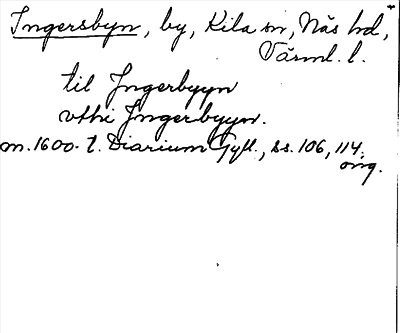 Ingersbyn, by, Kila sn, Näs hd,
Värml. l.
til Jngerbyyn
vthi Jngerbyyn.
m. 1600-t. Diarium Gyll., ss. 106, 114.
orig.